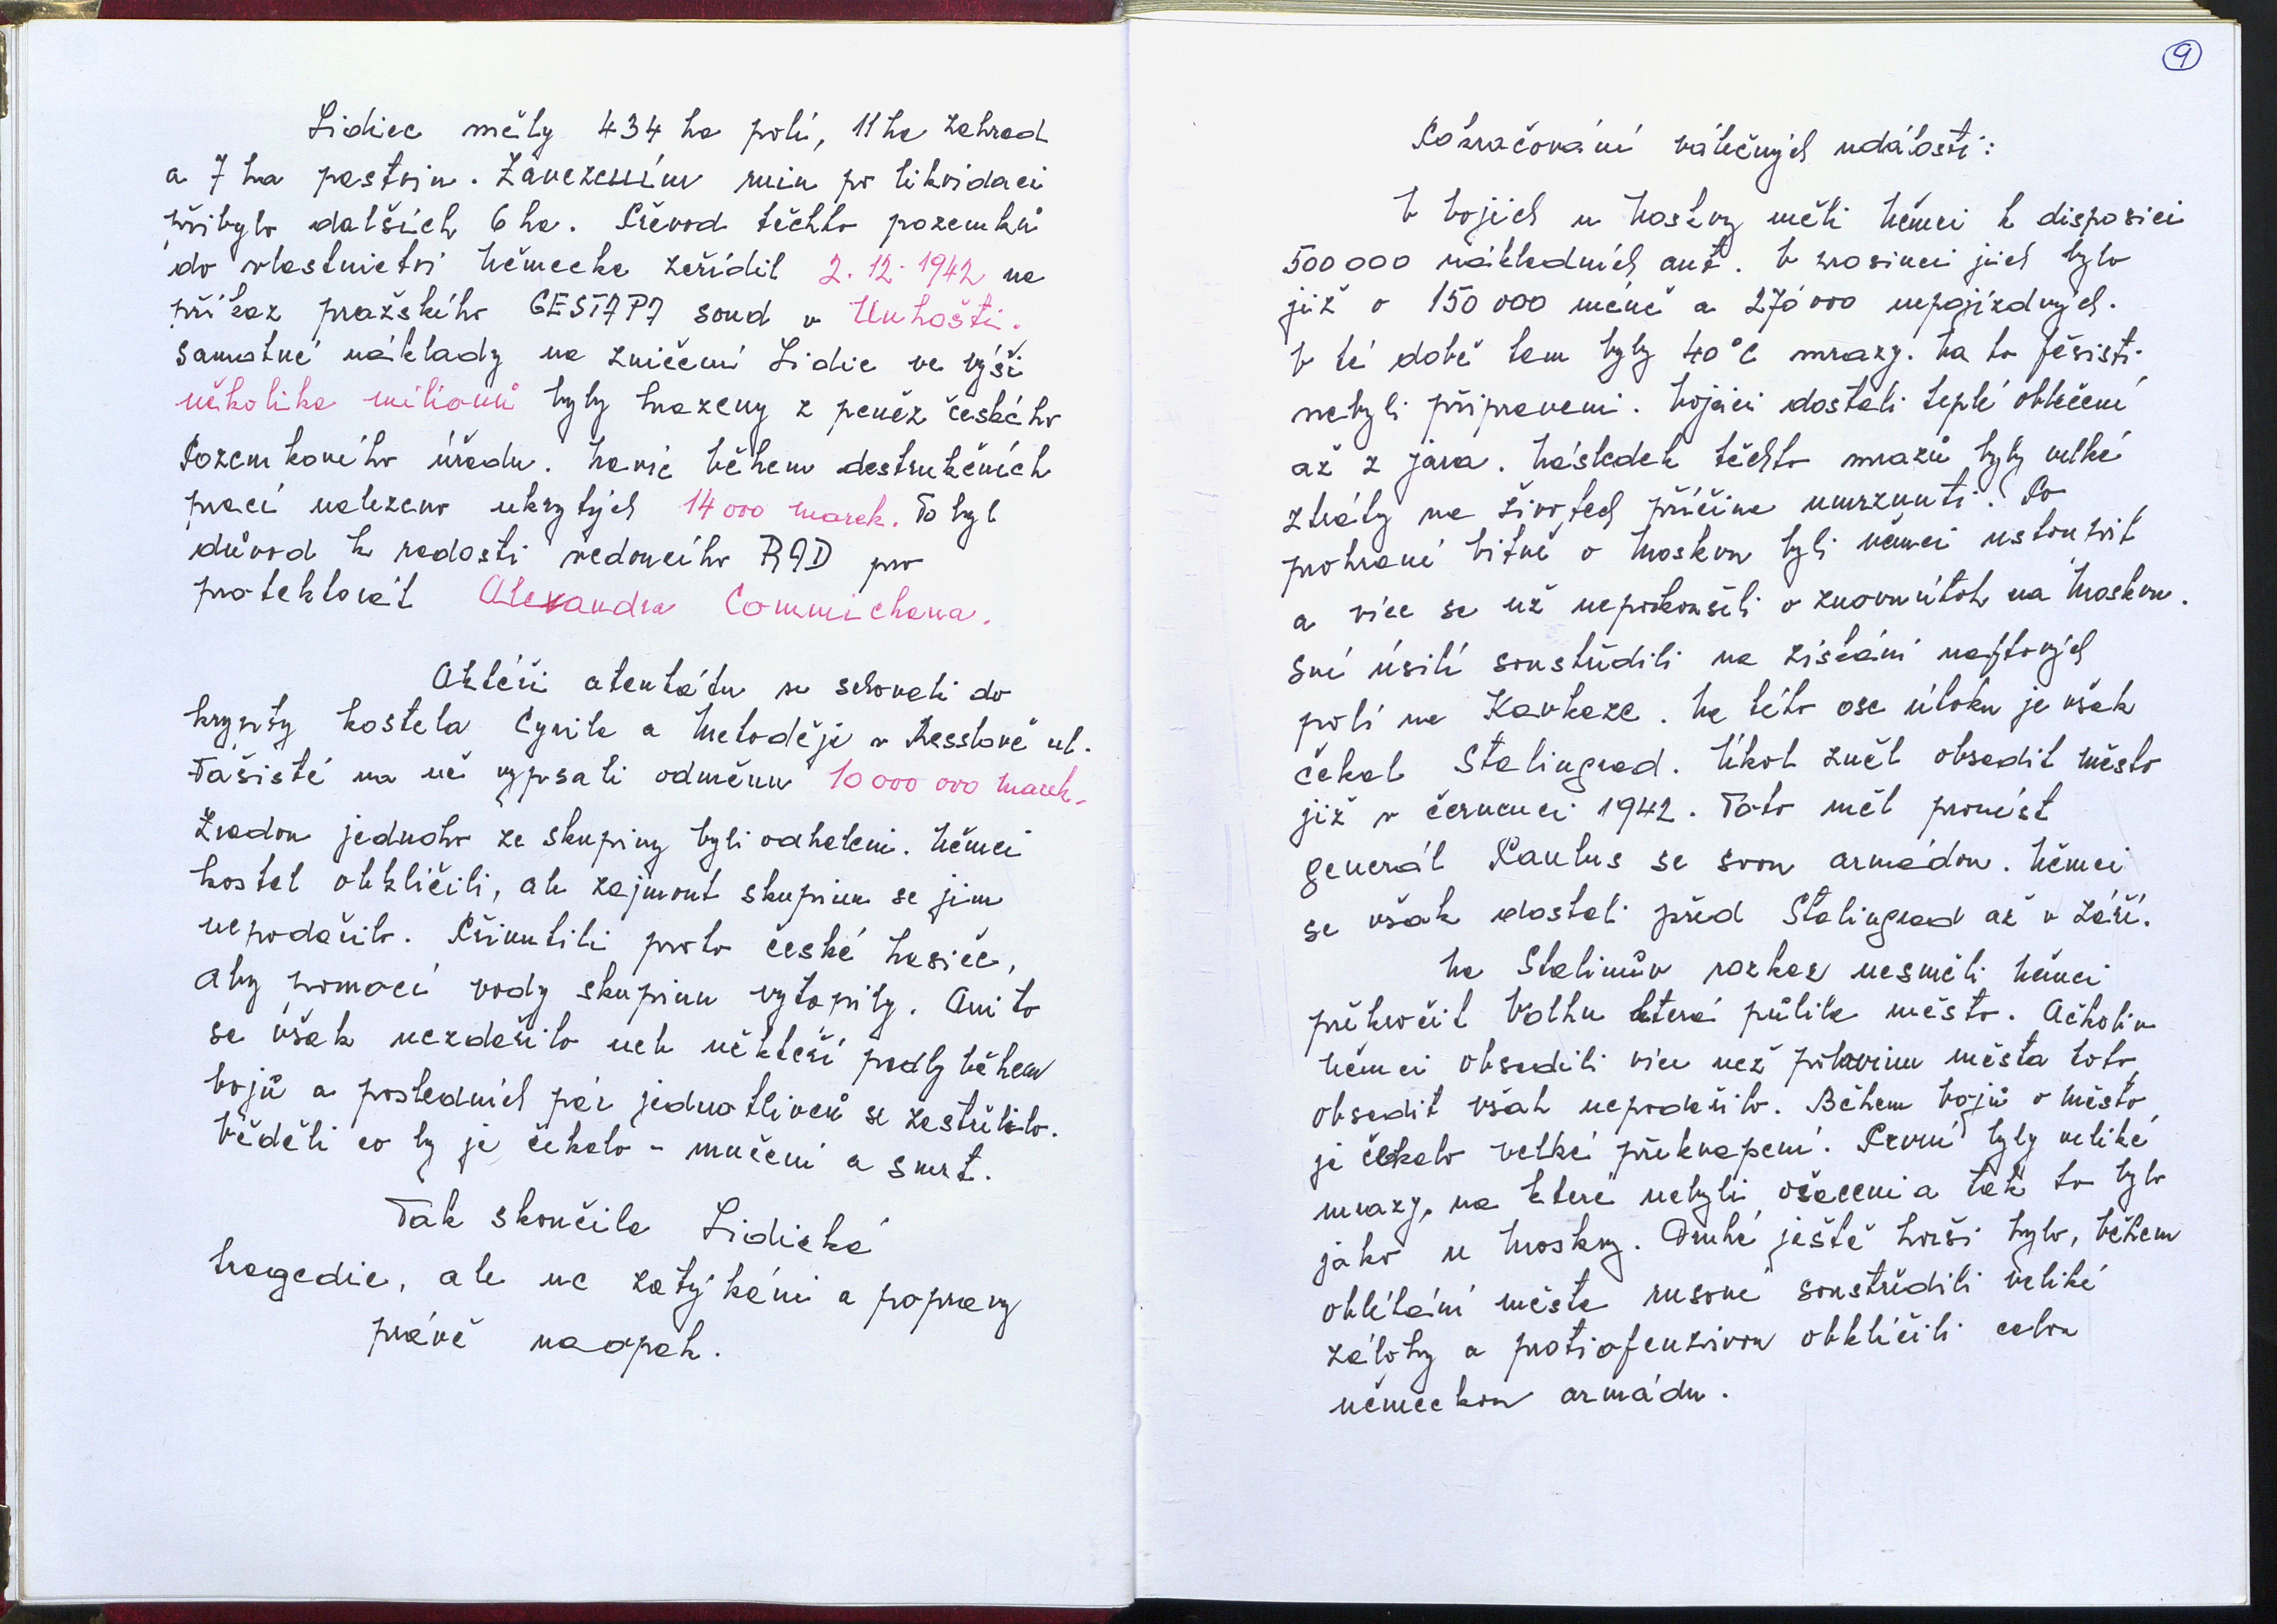 Lidice měly 434 ha polí, 11 ha zahrad
a 7 ha pastvin. Zavezením ruin po likvidaci
přibylo dalších 6 ha. Převod těchto pozemků
do vlastnictví Německa zařídil 2. 12. 1942 na
příkaz pražského GESTAPA soud v Unhošti.
Samotné náklady na zničení Lidic ve výši
několika milionů byly hrazeny z peněz českého
Pozemkového úřadu. Navíc během destrukčních
prací nalezeno ukrytých 14 000 marek. To byl
důvod k radosti vedoucího RAD pro
protektorát Alexandra Commichana.
Aktéři atentátu se schovali do
krypty kostela Cyrila a Metoděje v Resslově ul.
Fašisté na ně vypsali odměnu 10 000 000 marek.
Zradou jednoho ze skupiny byli odhaleni. Němci
kostel obklíčili, ale zajmout skupinu se jim
nepodařilo. Přinutili proto české hasiče,
aby pomocí vody skupinu vytopily. Ani to
se však nezdařilo neb někteří padly během
bojů a posledních pár jednotlivců se zastřelilo.
Věděli co by je čekalo - mučení a smrt.
Tak skončila Lidická
tragedie, ale ne zatýkání a popravy
právě naopak.
9
Pokračování válečných událostí:
V bojích u Moskvy měli Němci k disposici
500 000 nákladních aut. V prosinci jich bylo
již o 150 000 méně a 270 000 nepojízdných.
V té době tam byly 40°C mrazy. Na to fašisti
nebyli připraveni. Vojáci dostali teplé oblečení
až z jara. Následek těchto mrazů byly velké
ztráty na životech příčina umrznutí. Po
prohrané bitvě o Moskvu byli němci ustoupit
a více se už nepokoušeli o znovuútok na Moskvu.
Své úsilí soustředili na získání naftových
polí na Kavkaze. Na této ose útoku je však
čekal Stalingrad. Úkol zněl obsadit město
již v červenci 1942. Toto měl provést
generál Paulus se svou armádou. Němci
se však dostali před Stalingrad až v září.
Na Stalinův rozkaz nesměli němci
překročit Volhu která půlila město. Ačkoliv
němci obsadili více než polovinu města toto
obsadit však nepodařilo. Během bojů o město
je čekalo velké překvapení. První byly veliké
mrazy, na které nebyli ošaceni a tak to bylo
jako u Moskvy. Druhé ještě horší bylo, během
obléhání města rusové soustředili veliké
zálohy a protiofenzivou obklíčili celou
německou armádu.